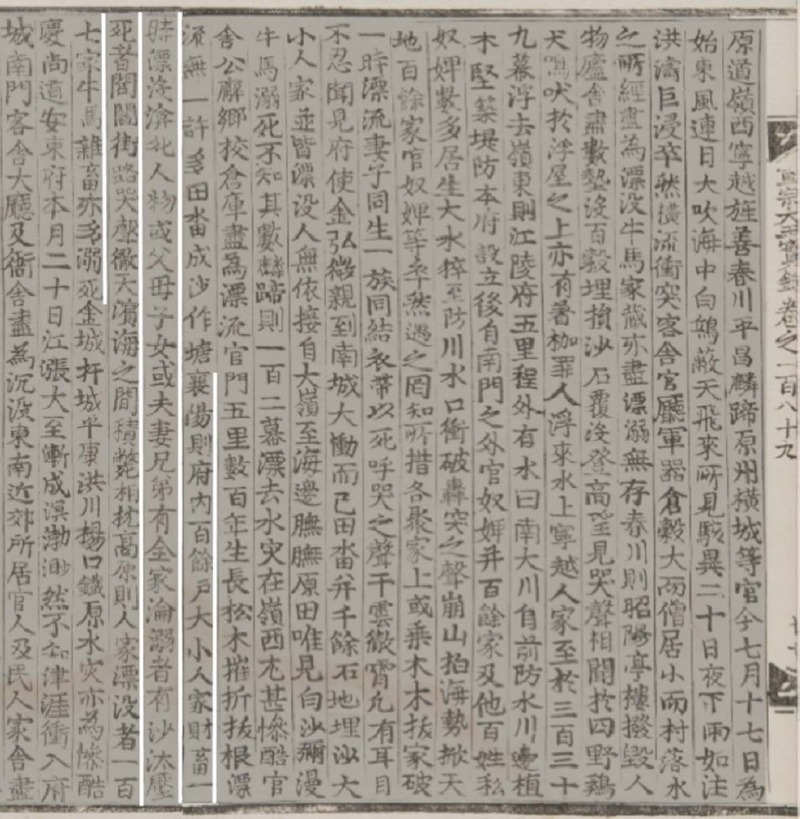 宣宗大王實錄卷之一百八十九
原道嶺西寧越旌善春川平昌麟蹄原州橫城等官今七月十七日爲
始東風連日大吹海中白鷗蔽天飛來所見駭異二十日夜下雨如注
洪濤巨浸卒然橫流衝突客舍官廳軍器倉穀大而僧居小而村落水
之所經盡爲漂沒牛馬家藏亦盡漂溺無存春川則昭陽亭樓撥毀人
物廬舍盡數墊沒百穀埋損沙石覆沒登高望見哭聲相聞於四野鷄
犬鳴吠於浮屋之上亦有着枷罪人浮來水上寧越人家至於三百三十
九幕浮去嶺東則江陵府五里程外有水曰南大川自前防水川邊植
木堅築堤防本府設立後自南門之外官奴婢幷百餘家及他百姓私
奴婢數多居生大水猝至防川水口衝破轟突之聲崩山拍海勢掀天
地百餘家官奴婢等卒然遇之罔知所措各聚家上或乘木木拔家破
一時漂流妻子同生一族同結衣帶以死呼哭之聲干雲徹霄凡有耳目
不忍聞見府使金弘微親到南城大慟而已田畓幷千餘石地埋沙大
小人家並皆漂沒人無依接自大嶺至海邊膴膴原田唯見白沙瀰漫
牛馬溺死不知其數麟蹄則一百二幕漂去水灾在嶺西尤甚慘酷官
舍公廨鄕校倉庫盡爲漂流官門五里數百年生長松木摧折拔根漂
流無一許多田畓成沙作塘襄陽則府內百餘戶大小人家財畜一
時漂沒渰死人物或父母子女或夫妻兄弟有全家淪溺者有沙汰壓
死者閭閻街路哭聲徹天濱海之間積斃相枕高原則人家漂沒者一百
七家牛馬雜畜亦多溺死金城杆城平康洪川楊口鐵原水灾亦爲慘酷
慶尙道安東府本月二十日江漲大至漸成溟渤渺然不知津涯衝入府
城南門客舍大廳及衙舍盡爲沉沒東南近郊所居官人及民人家舍盡